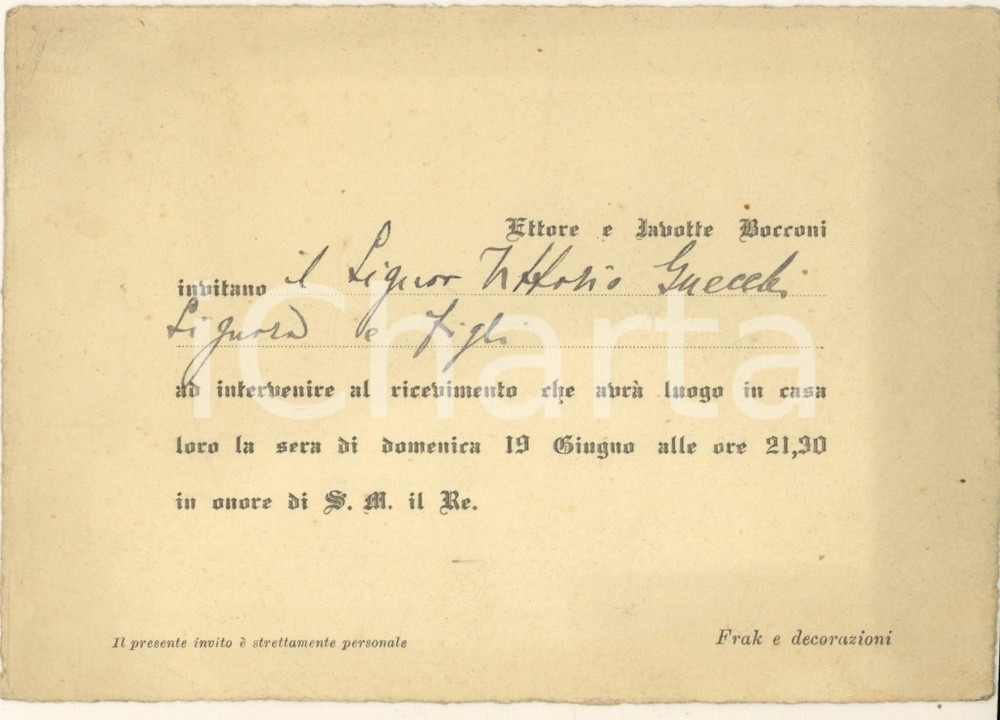 Ettore e Iavotte Bocconi
invitano il Signor Vittorio Gnecchi
Signora e figli
ad intervenire al ricevimento che avrà luogo in casa
loro la sera di domenica 19 Giugno alle ore 21,30
in onore di S. M. il Re.
Il presente invito è strettamente personale
Frak e decorazioni
iCharta